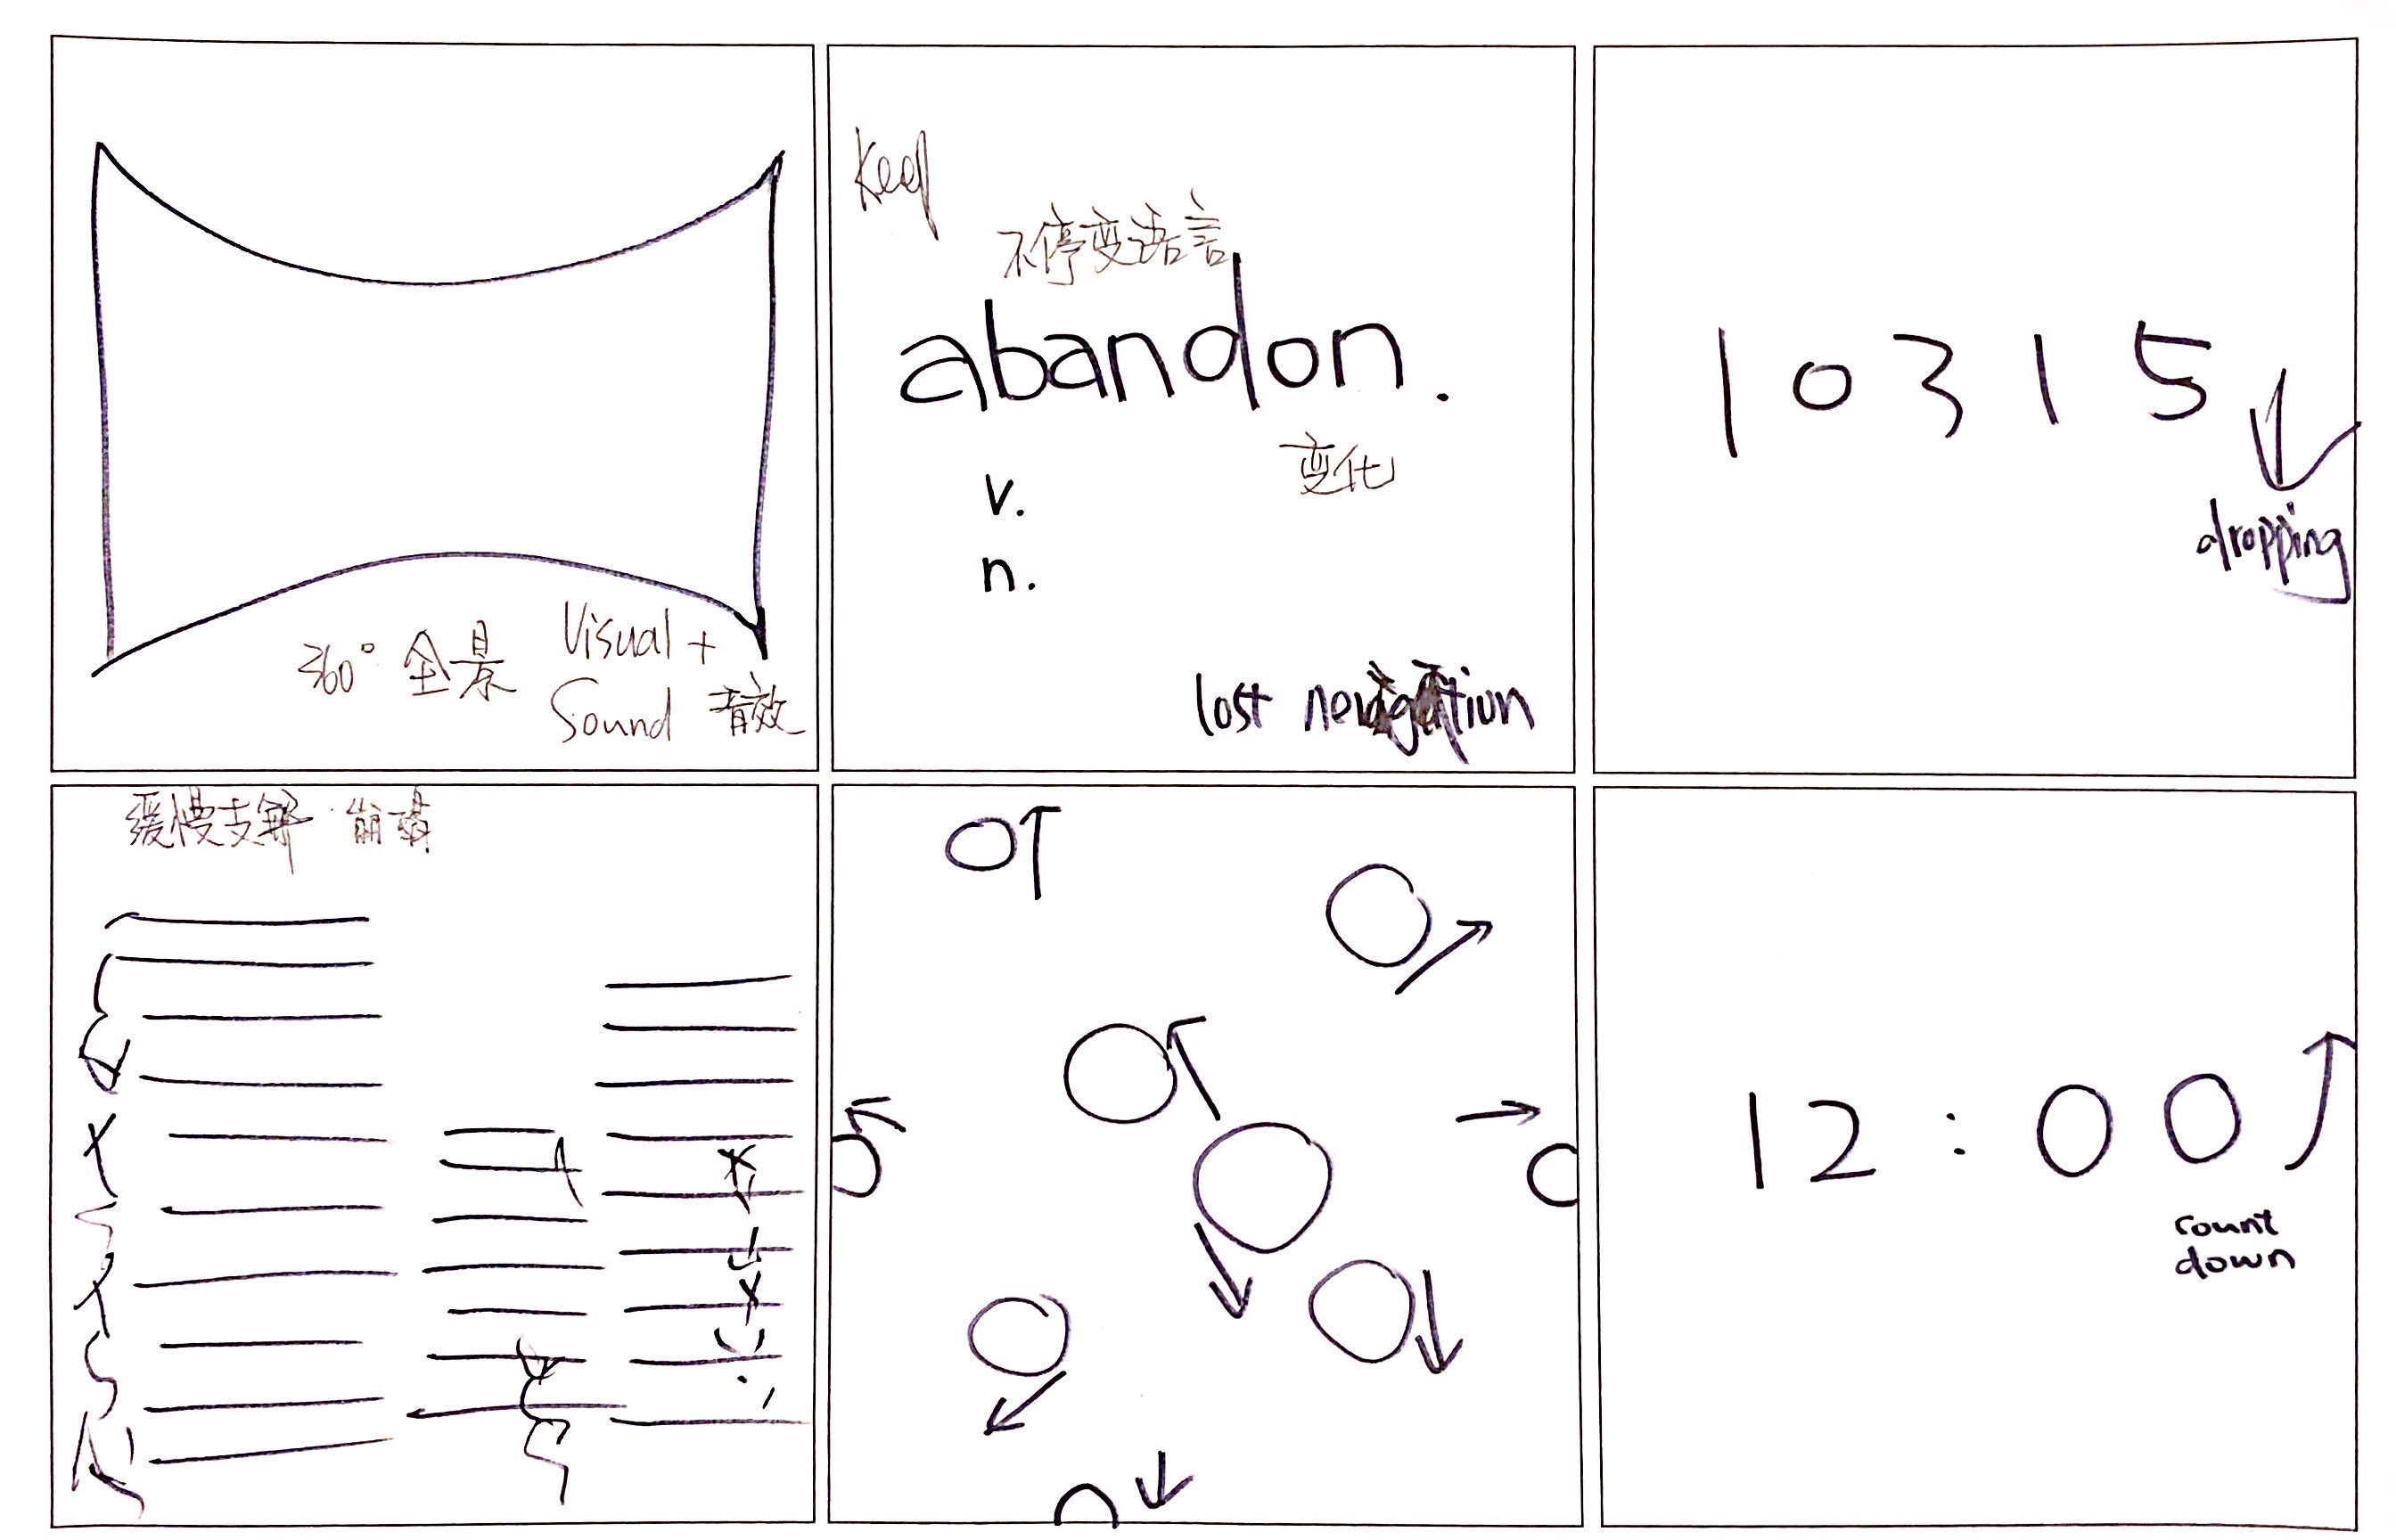 360° 全景
Visual +
Sound 音效
不停变语言
abandon.
变化
v.
n.
lost nevigation
10315
dropping
缓慢支解 崩塌
12:00
count
down